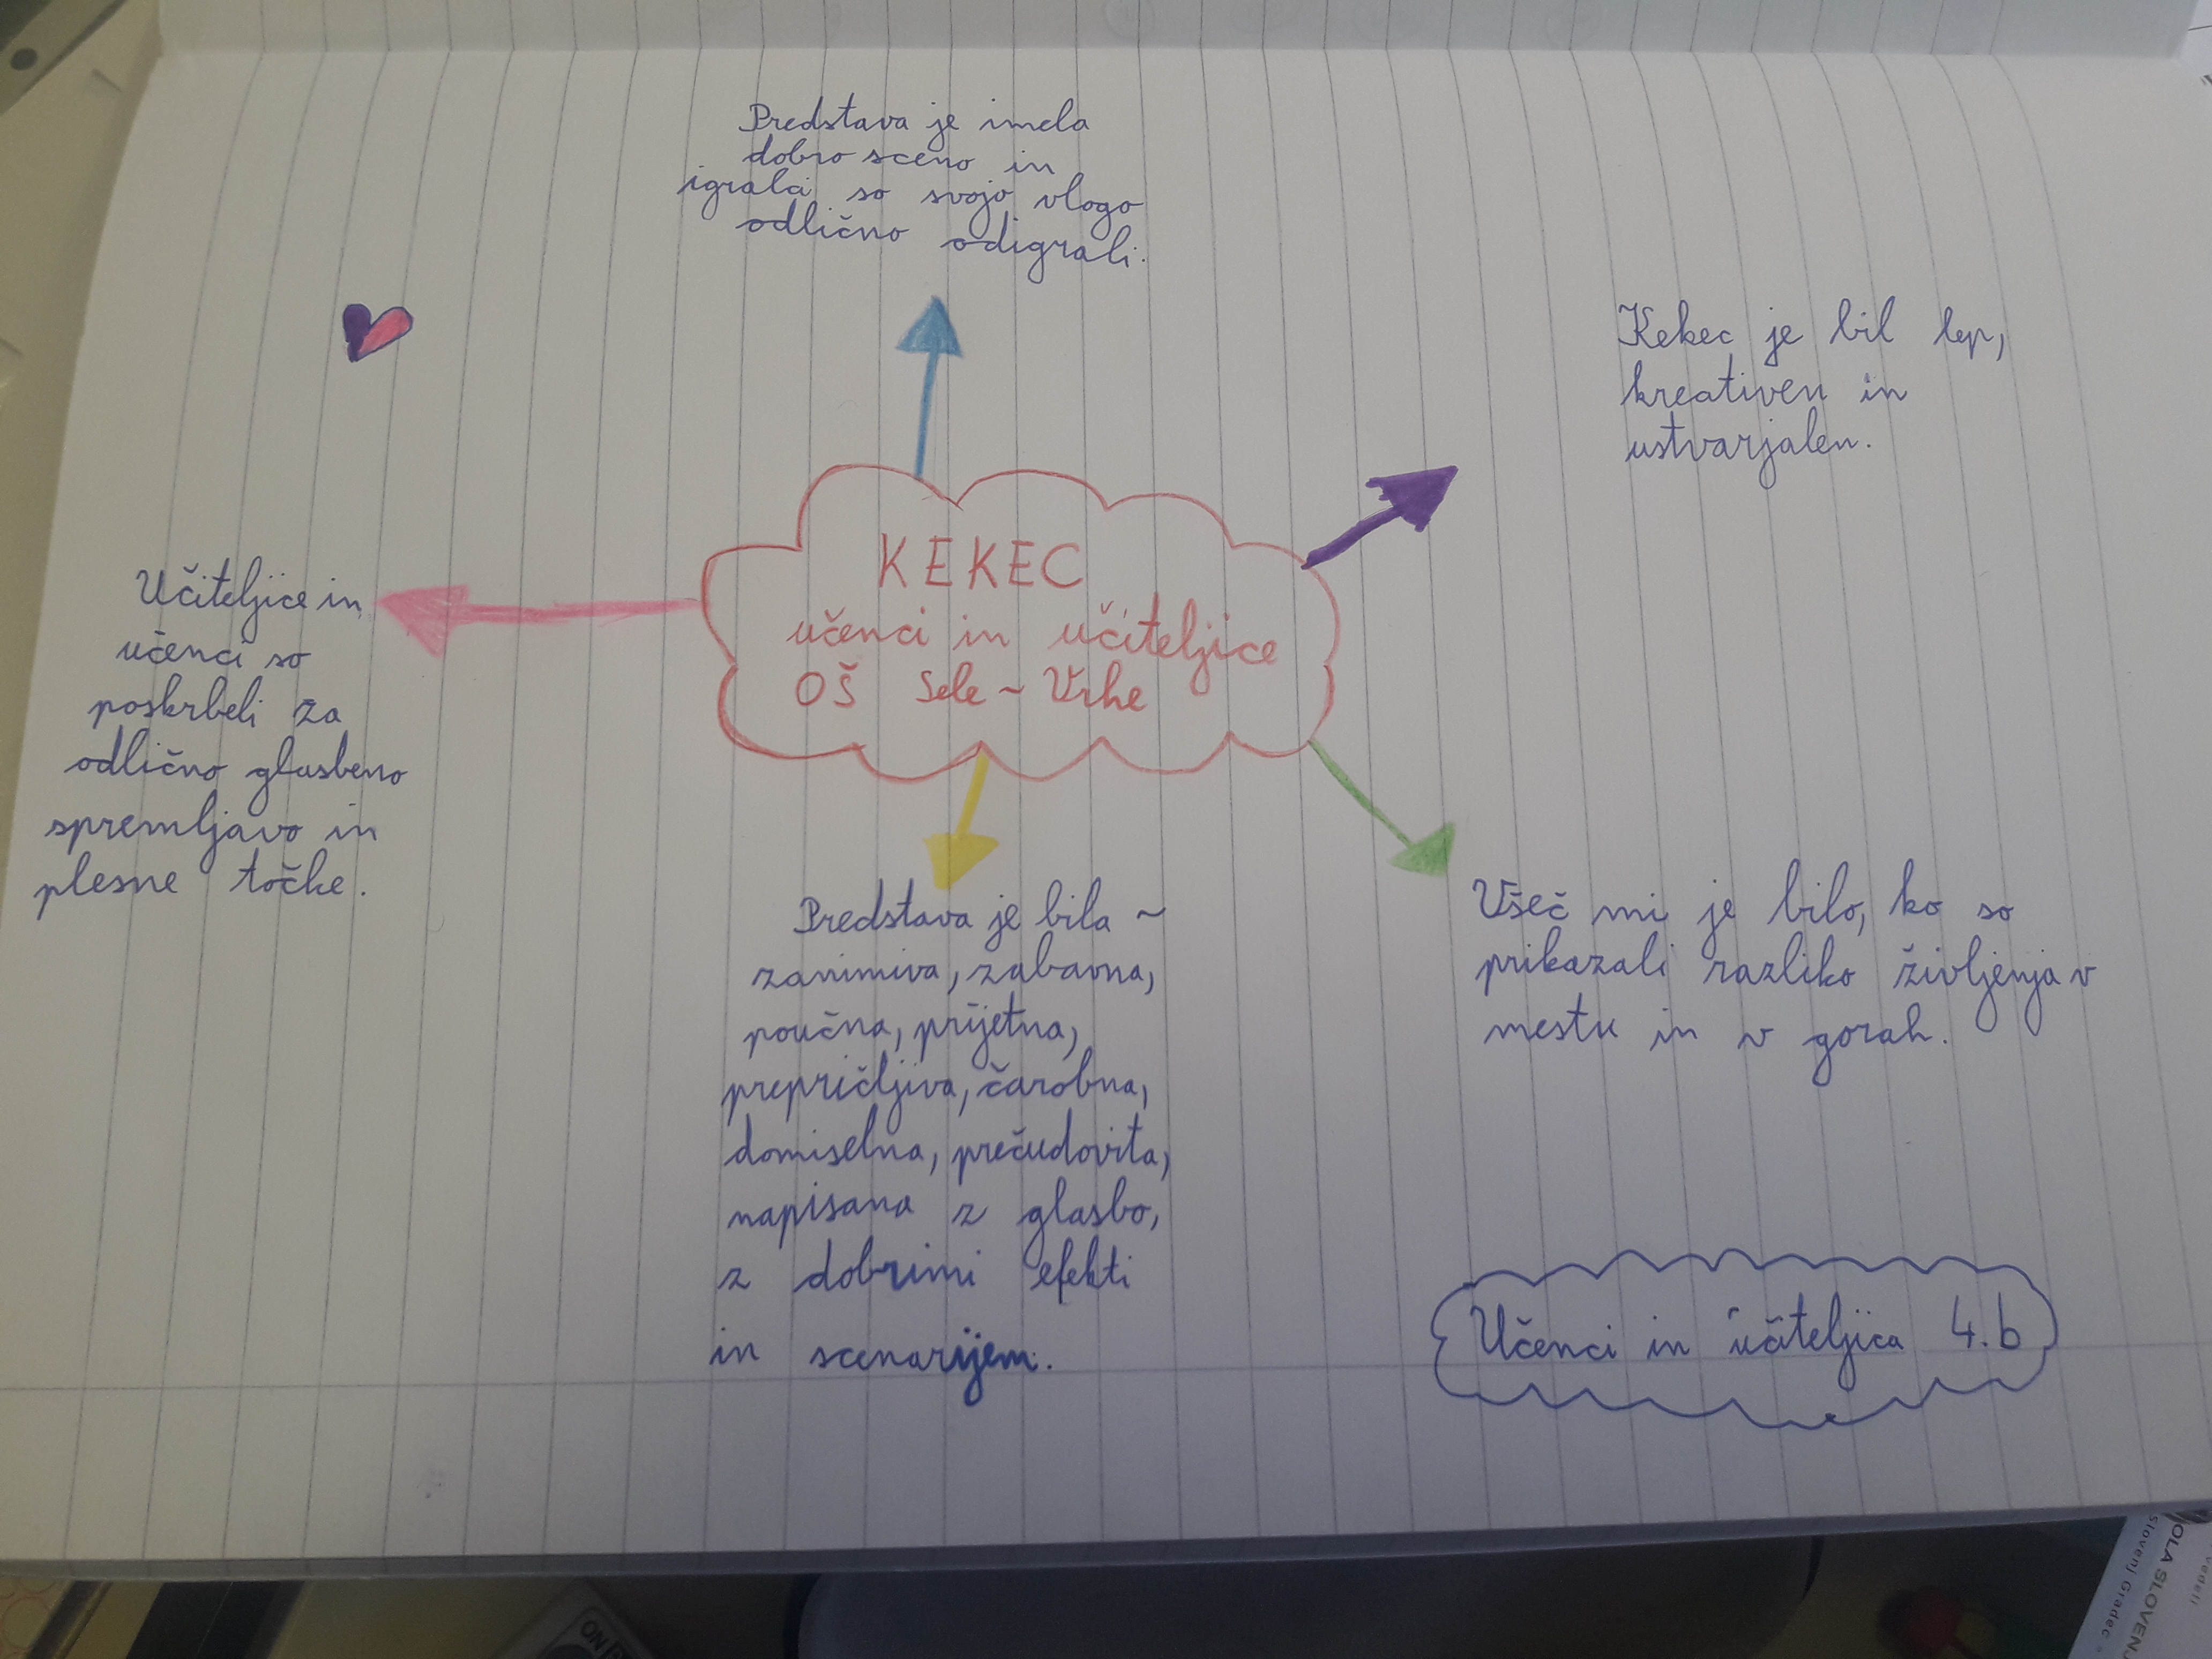 Predstava je imela
dobro sceno in
igralci so svojo vlogo
odlično odigrali.
Kekec je bil lep,
kreativen in
ustvarjalen.
KEKEC
učenci in učiteljice
OŠ Sele ~ Vrhe
Učiteljice in
učenci so
poskrbeli za
odlično glasbeno
spremljavo in
plesne točke.
Predstava je bila ~
zanimiva, zabavna,
poučna, prijetna,
prepričljiva, čarobna,
domiselna, prečudovita,
napisana z glasbo,
z dobrimi efekti
in scenarijem.
Všeč mi je bilo, ko so
prikazali razliko življenja v
mestu in v gorah.
Učenci in učiteljica 4.b
ON
OLA SLOVENJ
Slovenj Gradec